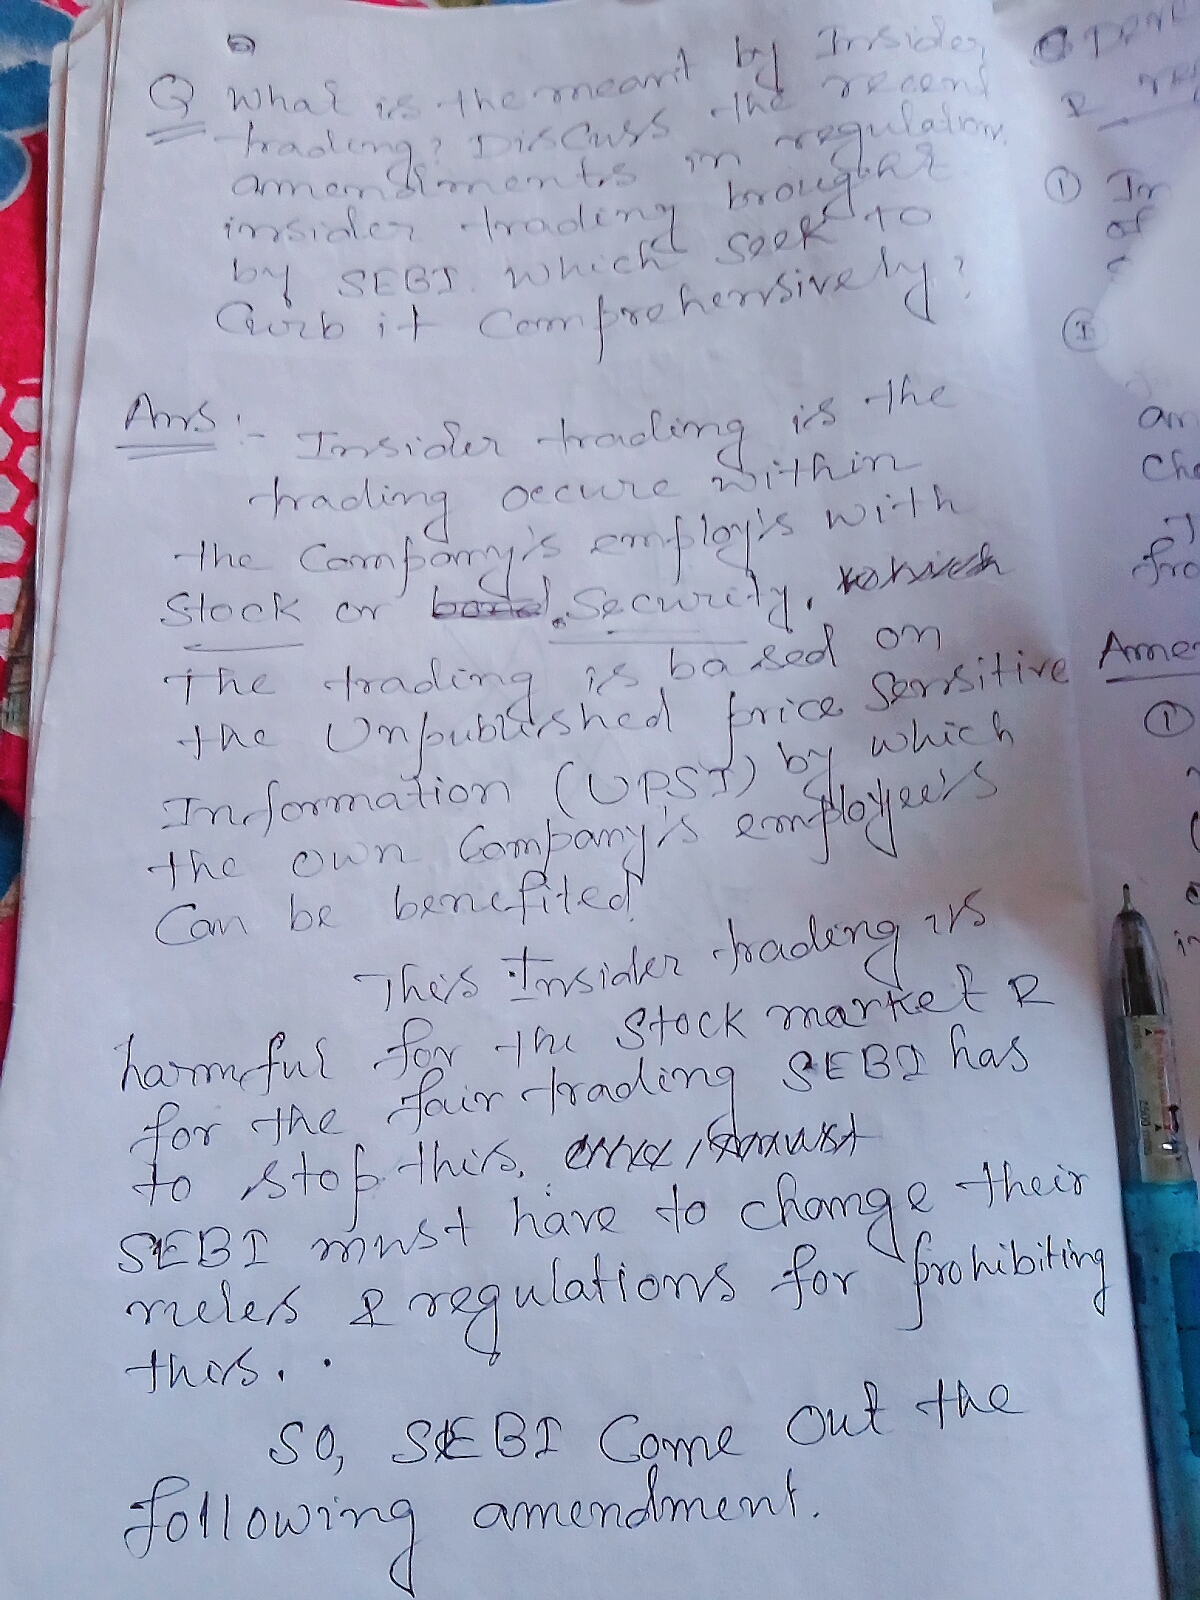 Q What is the meant by Insider
trading? Discuss the recent
amendments in regulation
insider trading brought
by SEBI. which seek to
Curb it Comprehensively?
Ans :- Insider trading is the
trading occure within
the Company's employ's with
Stock or Security.
The trading is based on
the Unpublished price Sensitive
Information (UPSI) by which
the own Company's employee's
Can be benefited.
This Insider trading is
harmful for the Stock market &
for the fair trading SEBI has
to stop this.
SEBI must have to change their
rules & regulations for prohibiting
this.
So, SEBI Come out the
following amendment.
①
In
of
②
Cha
fro
Amen
①
in